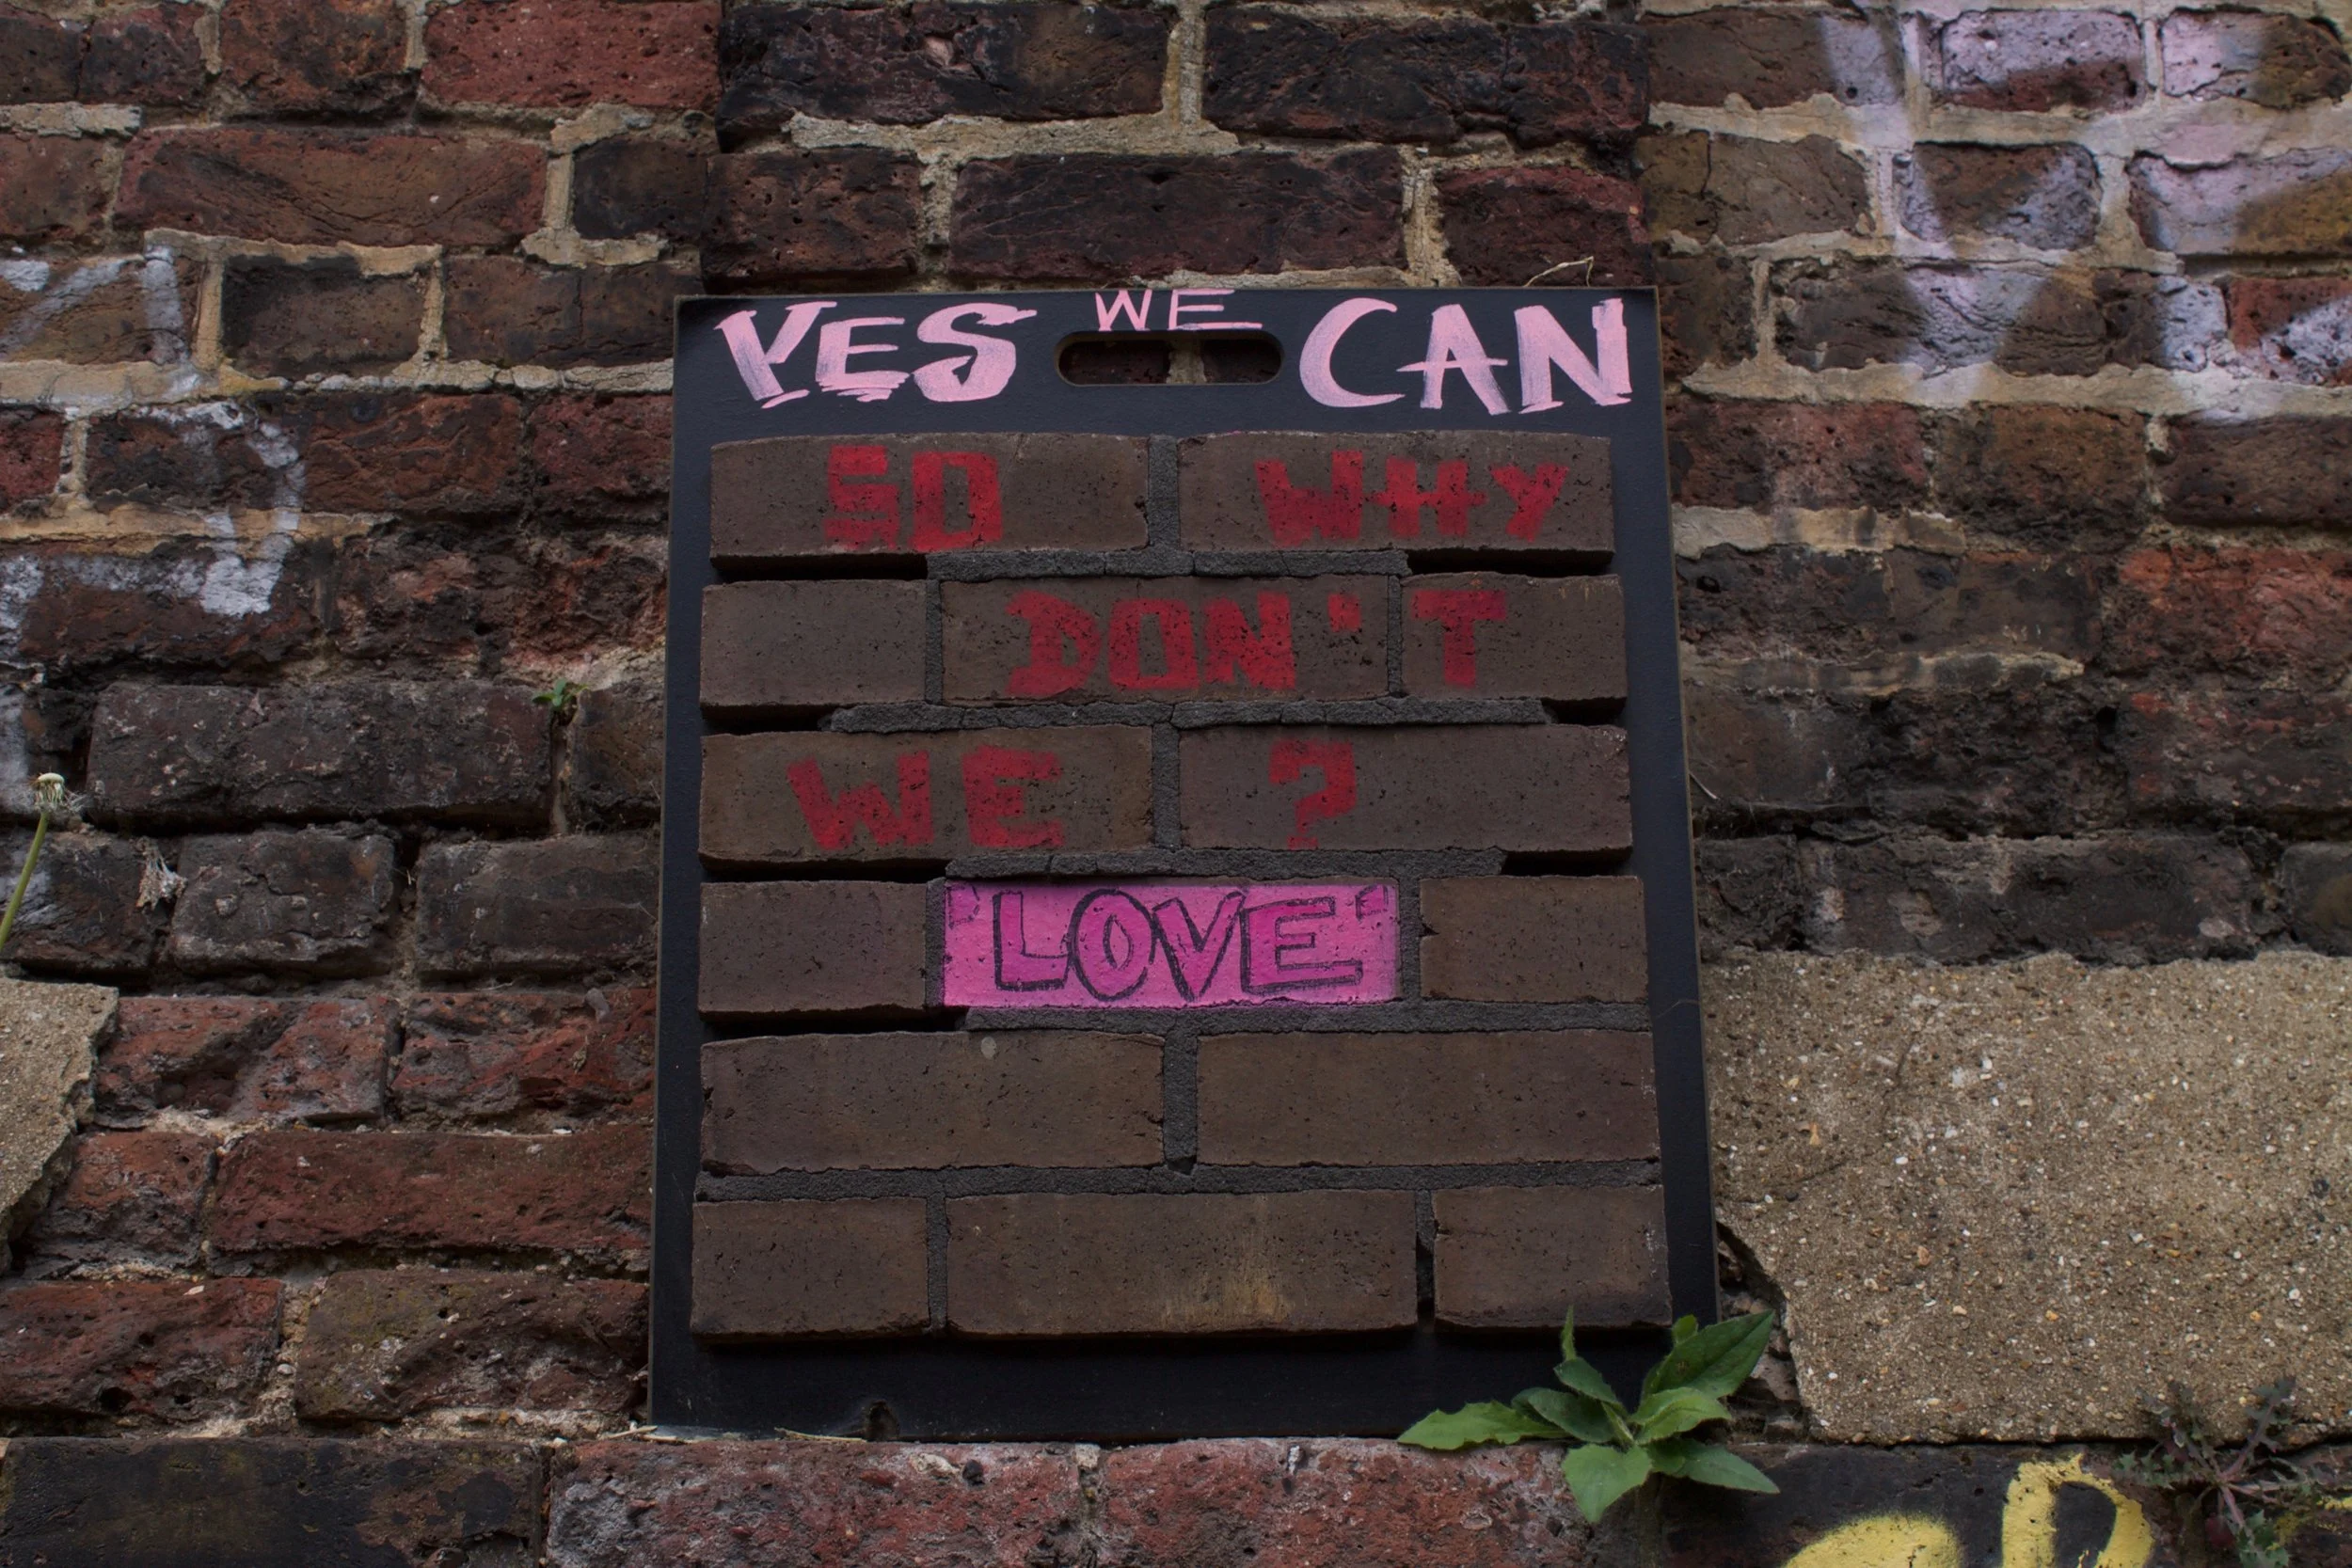 YES WE CAN
SO WHY
DON'T
WE ?
'LOVE'